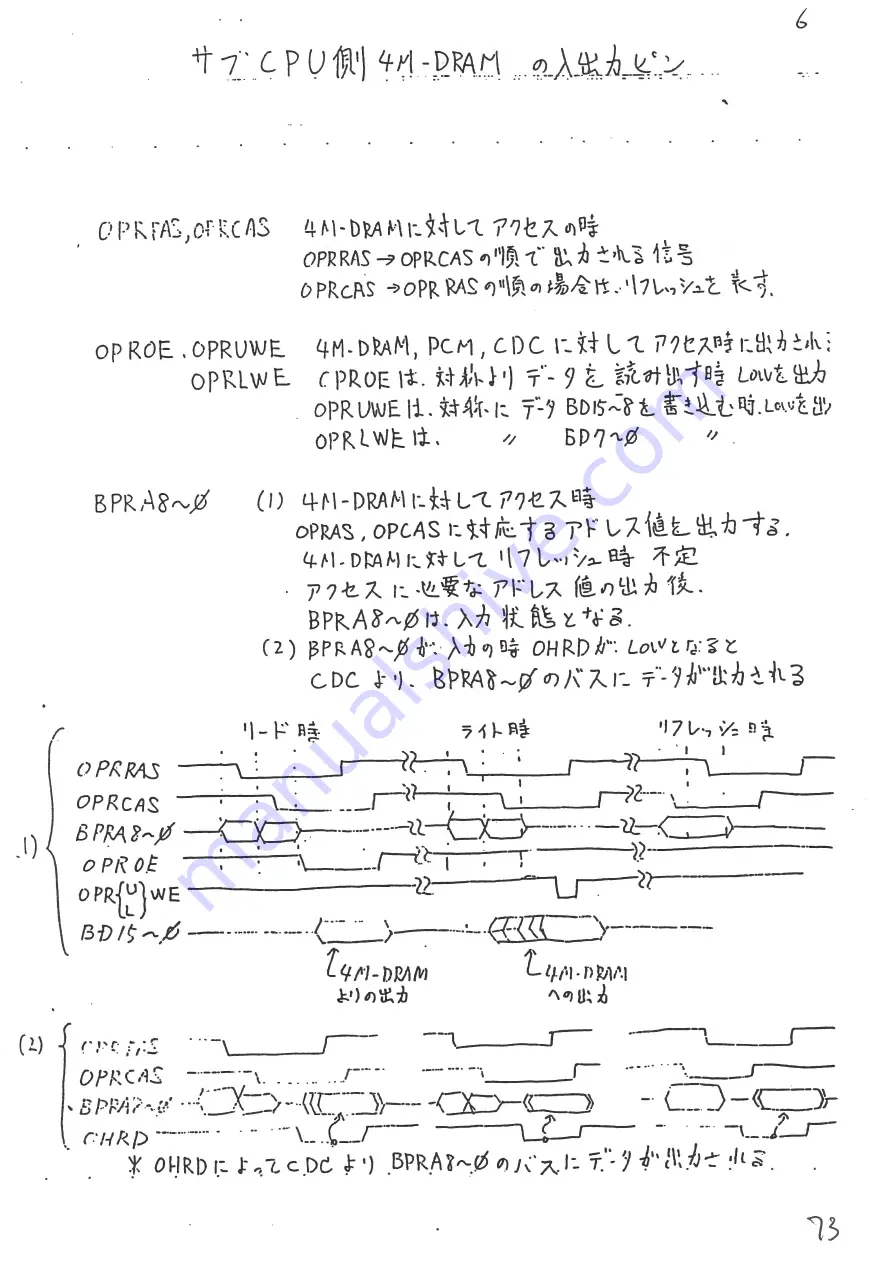 6
サブCPU側 4M-DRAM の入出力ピン
OPRRAS, OPRCAS 4M-DRAMに対してアクセスの時
OPRRAS→OPRCASの順で出力される信号
OPRCAS→OPRRASの順の場合は、リフレッシュを表す.
OPROE. OPRUWE 4M-DRAM, PCM, CDCに対してアクセス時に出力され
OPRLWE OPROEは. 対称よりデータを読み出す時Lowを出力
OPRUWEは. 対称にデータBD15~8を書き込む時. Lowを出
OPRLWEは. 〃 BD7~0 〃.
BPRA8~0 (1) 4M-DRAMに対してアクセス時
OPRAS, OPCASに対応するアドレス値を出力する.
4M-DRAMに対してリフレッシュ時 不定
アクセスに必要なアドレス値の出力後.
BPRA8~0は. 入力状態となる.
(2) BPRA8~0が. 入力の時 OHRDが. Lowとなると
CDCより. BPRA8~0のバスにデータが出力される
リード時 ライト時 リフレッシュ時
1)
OPRRAS
OPRCAS
BPRA8~0
OPROE
OPR{U L}WE
BD15~0
4M-DRAM よりの出力
4M-DRAM への出力
(2)
OPRCAS
OHRD
* OHRDによってCDCより BPRA8~0のバスにデータが出力される.
73
manualshive.com